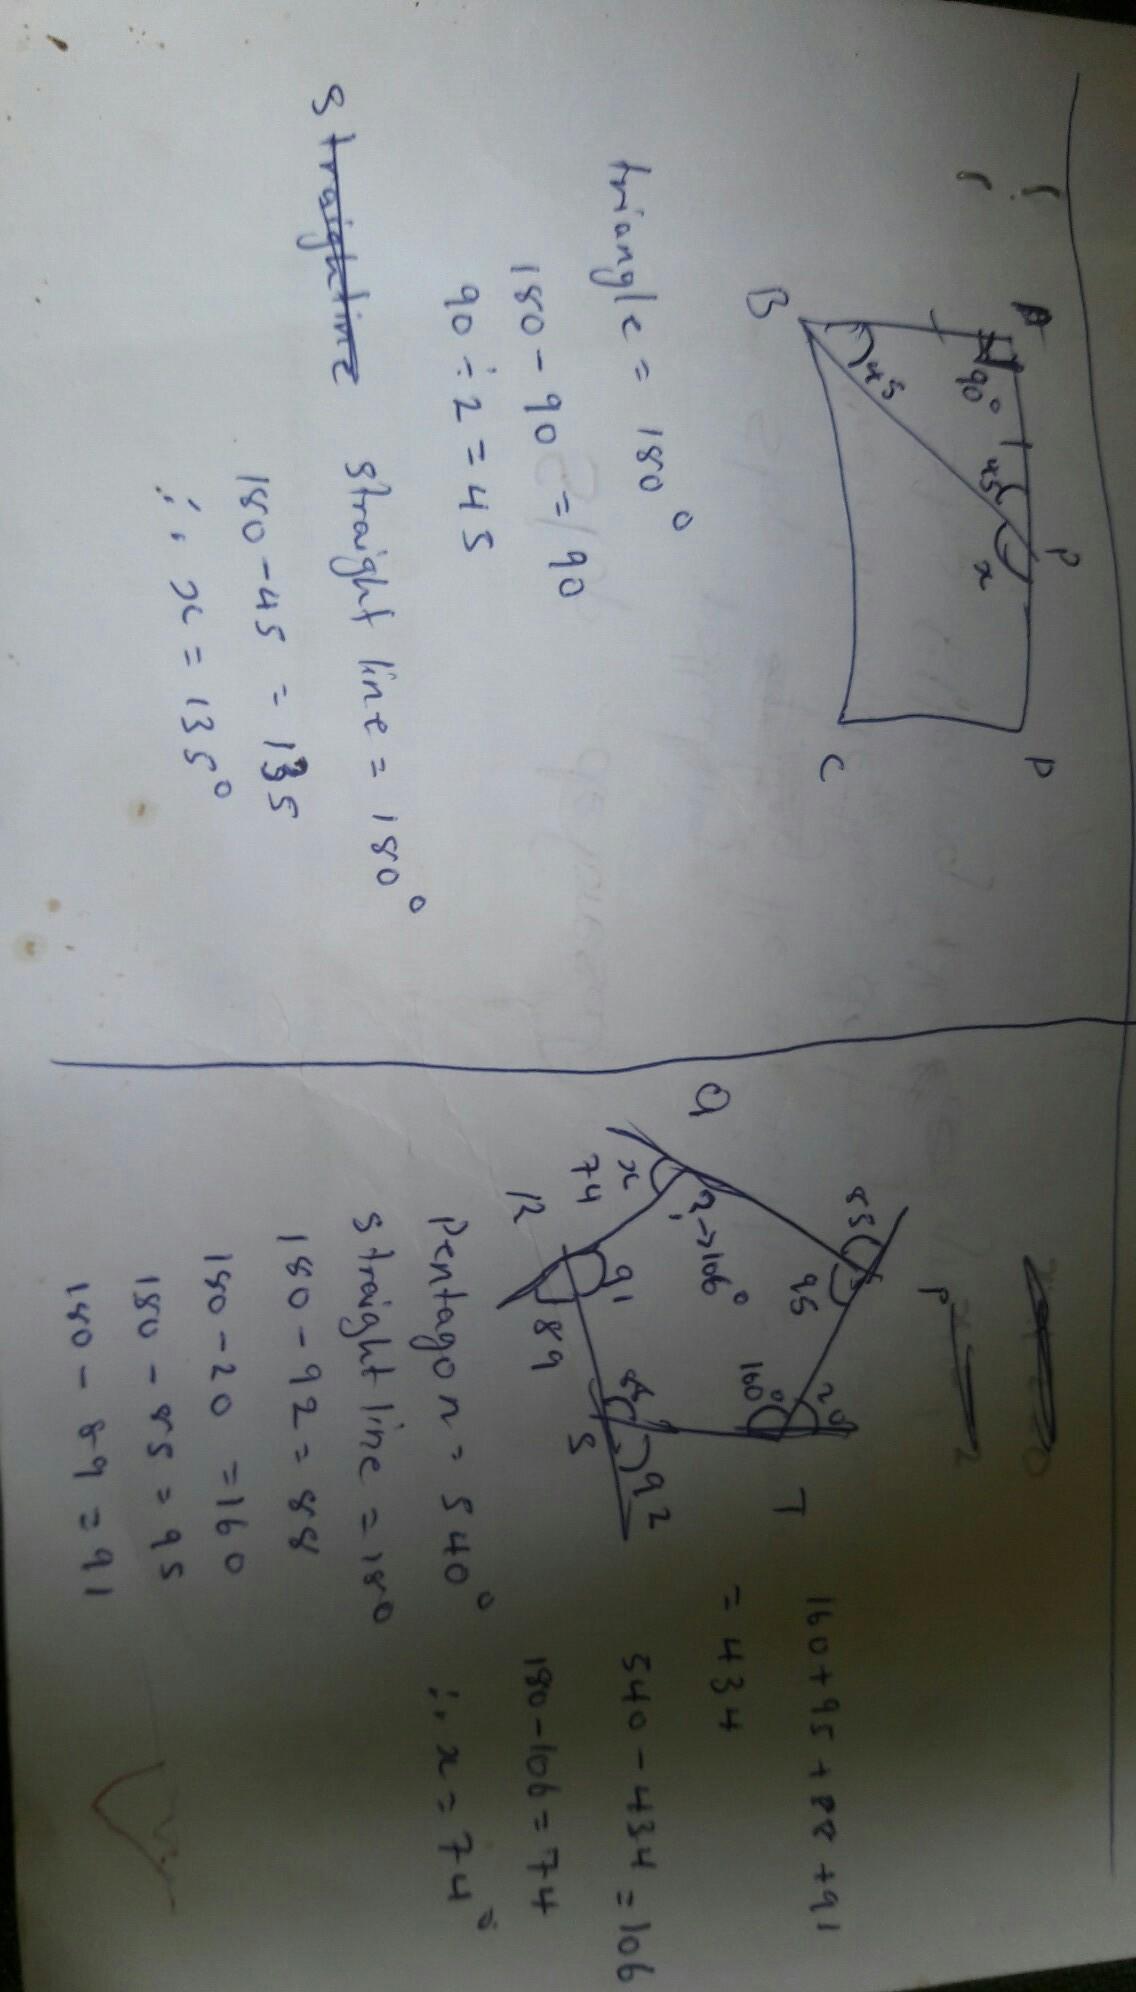 A
P
D
90°
45
x
45
B
C
triangle = 180°
180 - 90 = 90
90 ÷ 2 = 45
straight line straight line = 180°
180 - 45 = 135
∴ x = 135°
P
85
95
20
T
160°
Q
? → 106°
x
74
91
88
92
R
89
S
Pentagon = 540°
straight line = 180
180 - 92 = 88
180 - 20 = 160
180 - 85 = 95
180 - 89 = 91
160 + 95 + 88 + 91
= 434
540 - 434 = 106
180 - 106 = 74
∴ x = 74°